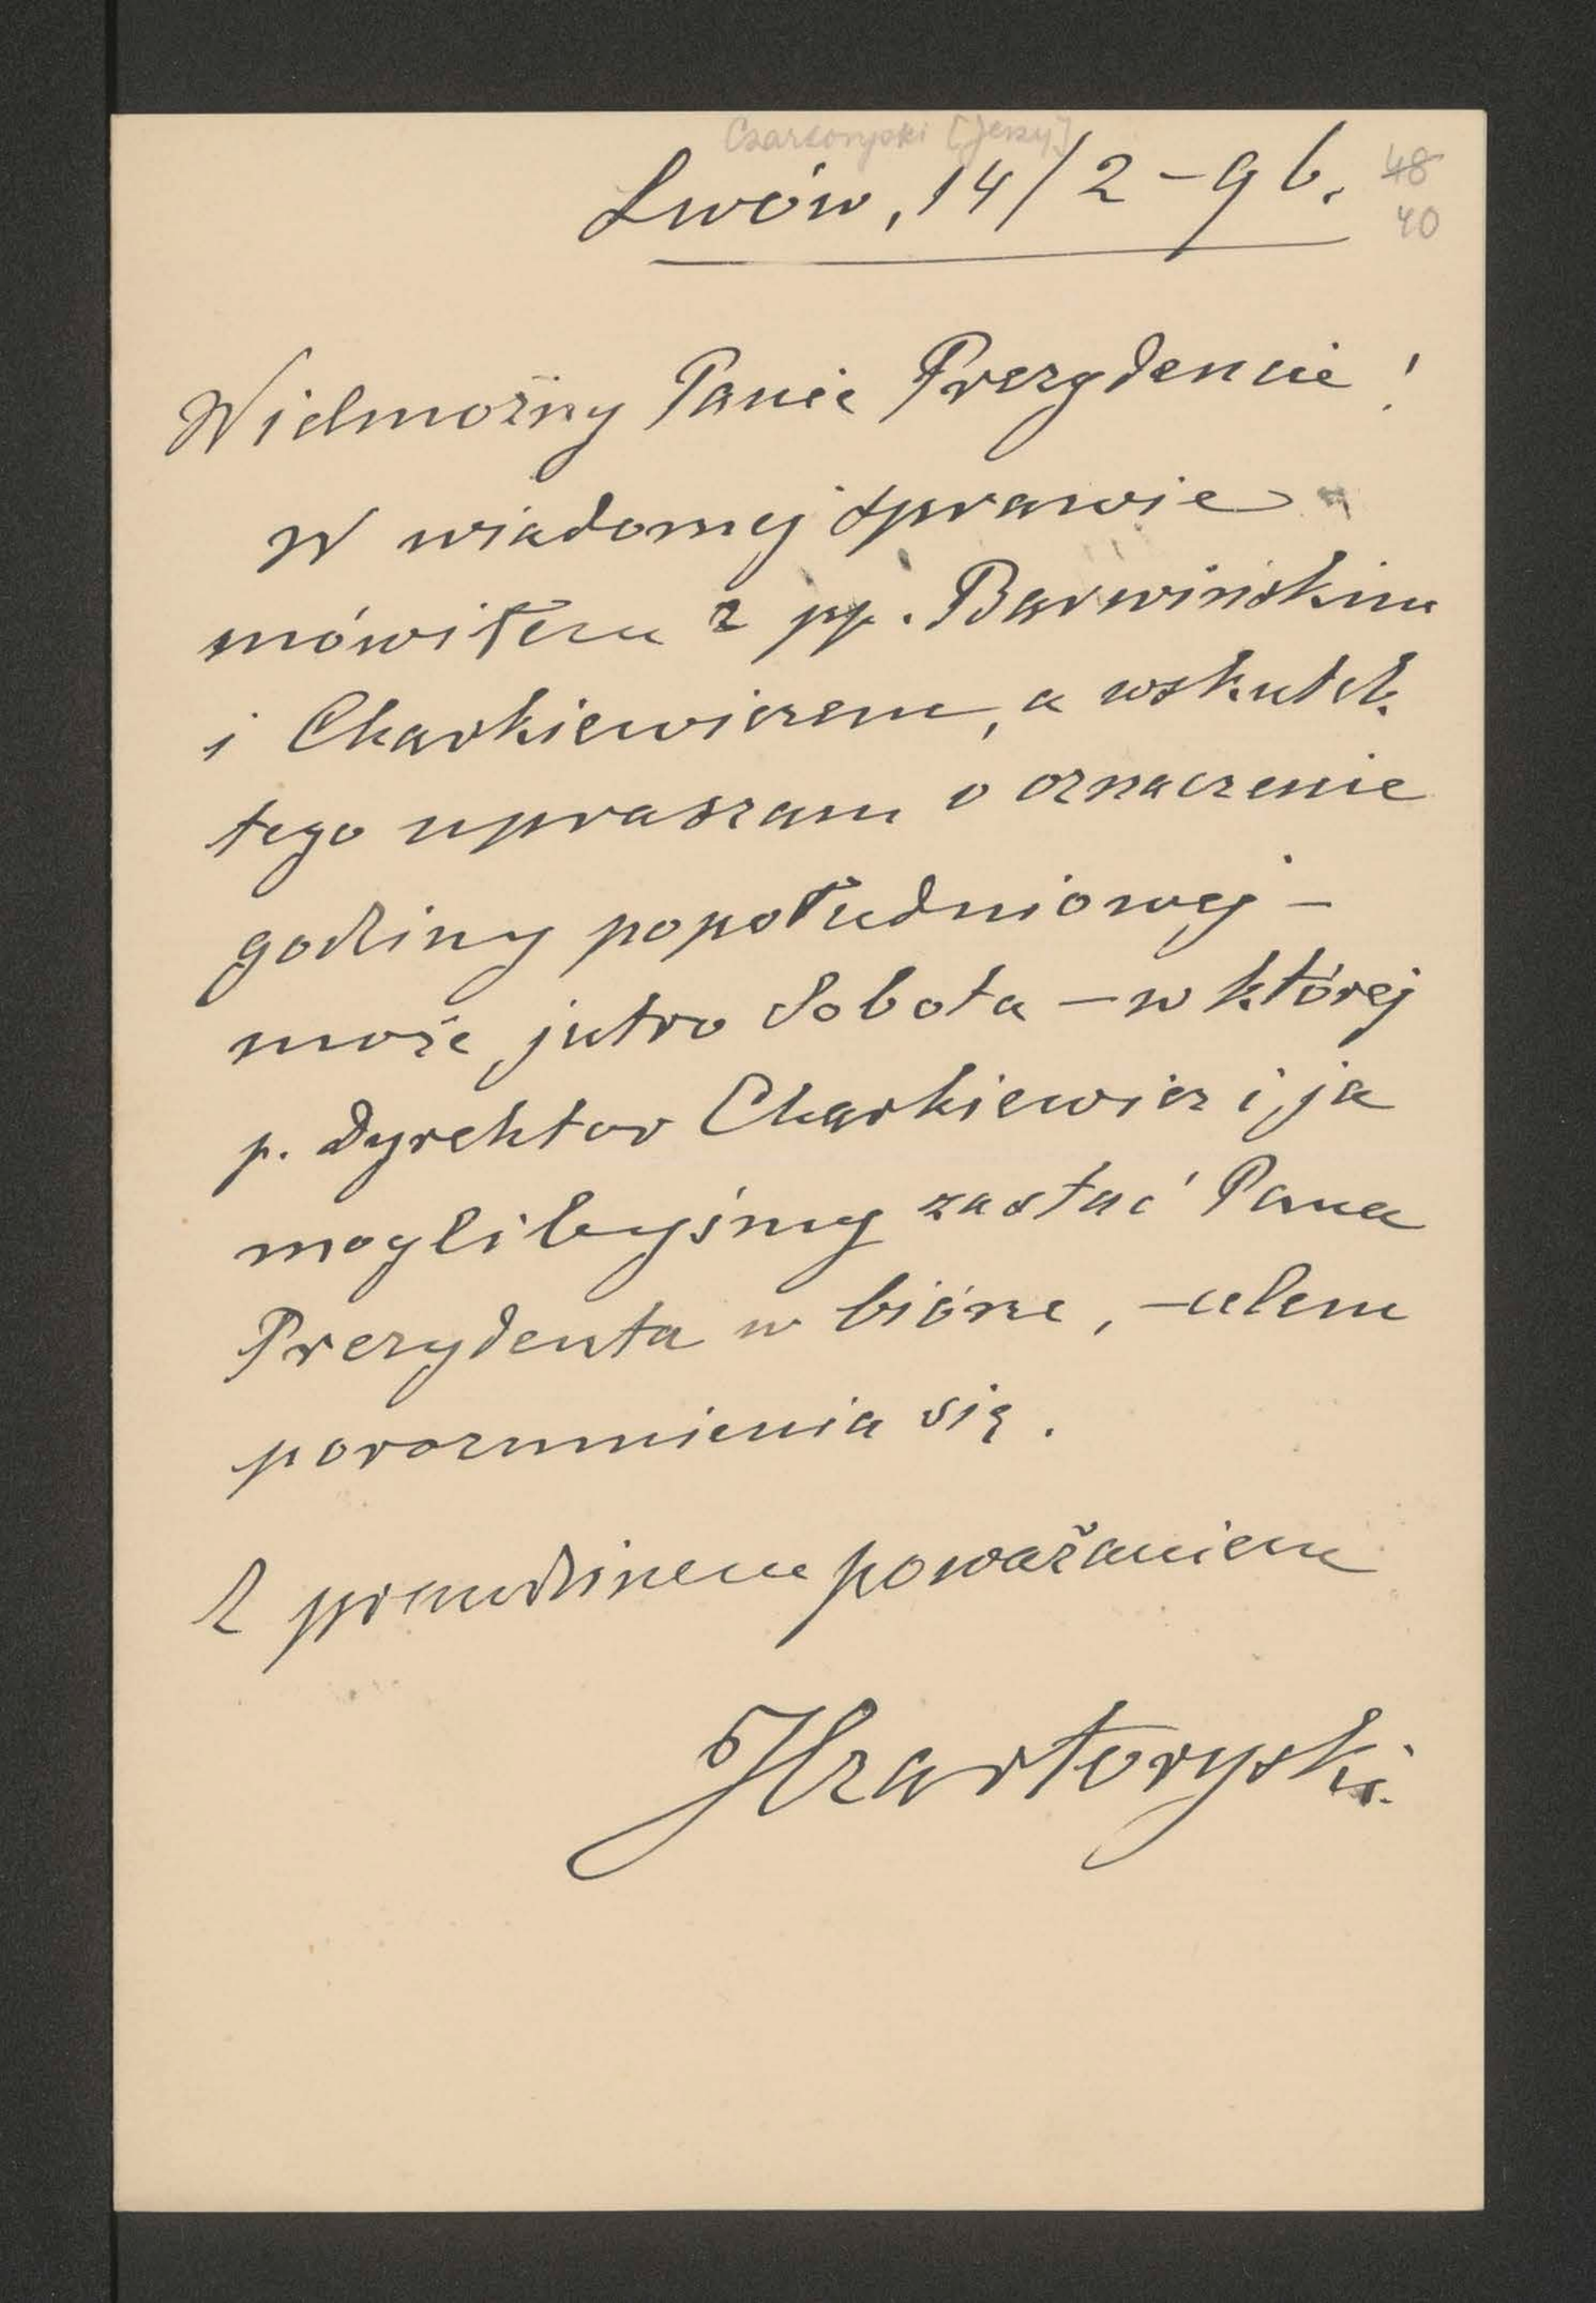 Czartoryski [Jerzy]
Lwów, 14/2-96.
48
40
Wielmożny Panie Prezydencie!
W wiadomej sprawie
mówiłem z pp. Barwińskim
i Charkiewiczem, a wskutek
tego upraszam o oznaczenie
godziny popołudniowej –
może jutro Sobota – w której
p. dyrektor Charkiewicz i ja
moglibyśmy zastać Pana
Prezydenta w biórze, – celem
porozumienia się.
Z prawdziwem poważaniem
JCzartoryski.